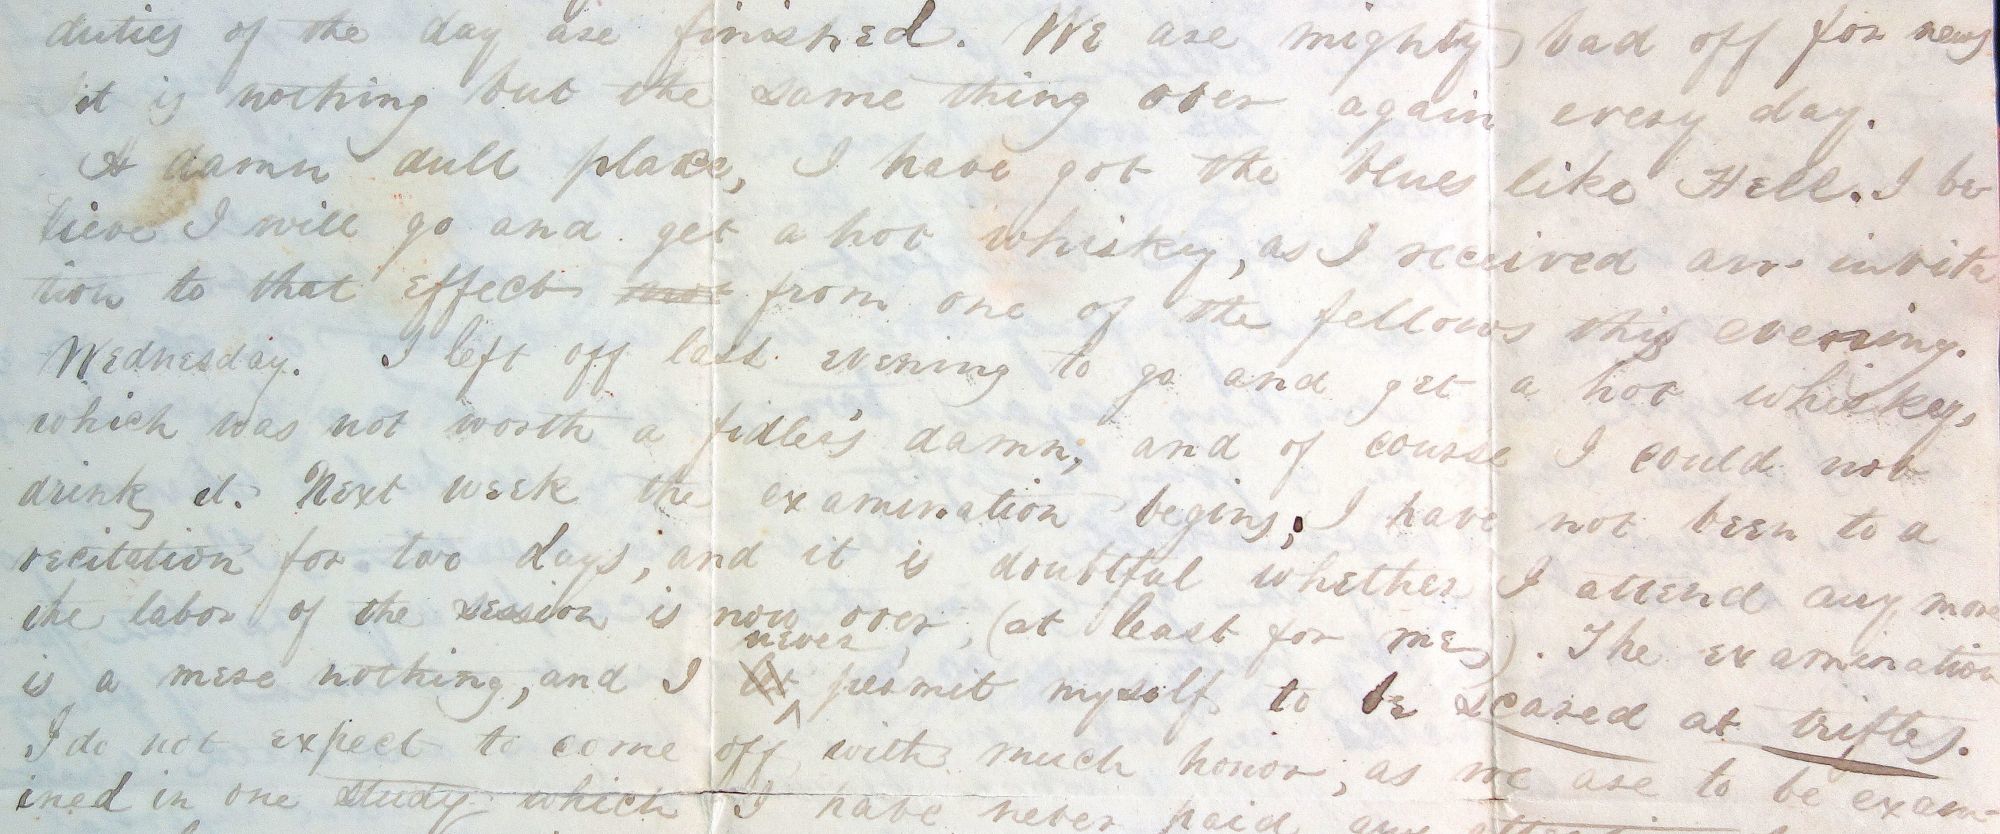 duties of the day are finished. We are mighty bad off for news
it is nothing but the same thing over again every day.
A damn dull place, I have got the blues like Hell. I be-
lieve I will go and get a hot whiskey, as I received an invita
tion to that effect from one of the fellows this evening.
Wednesday. I left off last evening to go and get a hot whiskey,
which was not worth a fidler's damn, and of course I could not
drink it. Next week the examination begins; I have not been to a
recitation for two days, and it is doubtful whether I attend any more
the labor of the session is now over, (at least for me,). The examination
never
is a mere nothing, and I permit myself to be scared at trifles.
I do not expect to come off with much honor, as we are to be exam-
ined in one study which I have never paid any